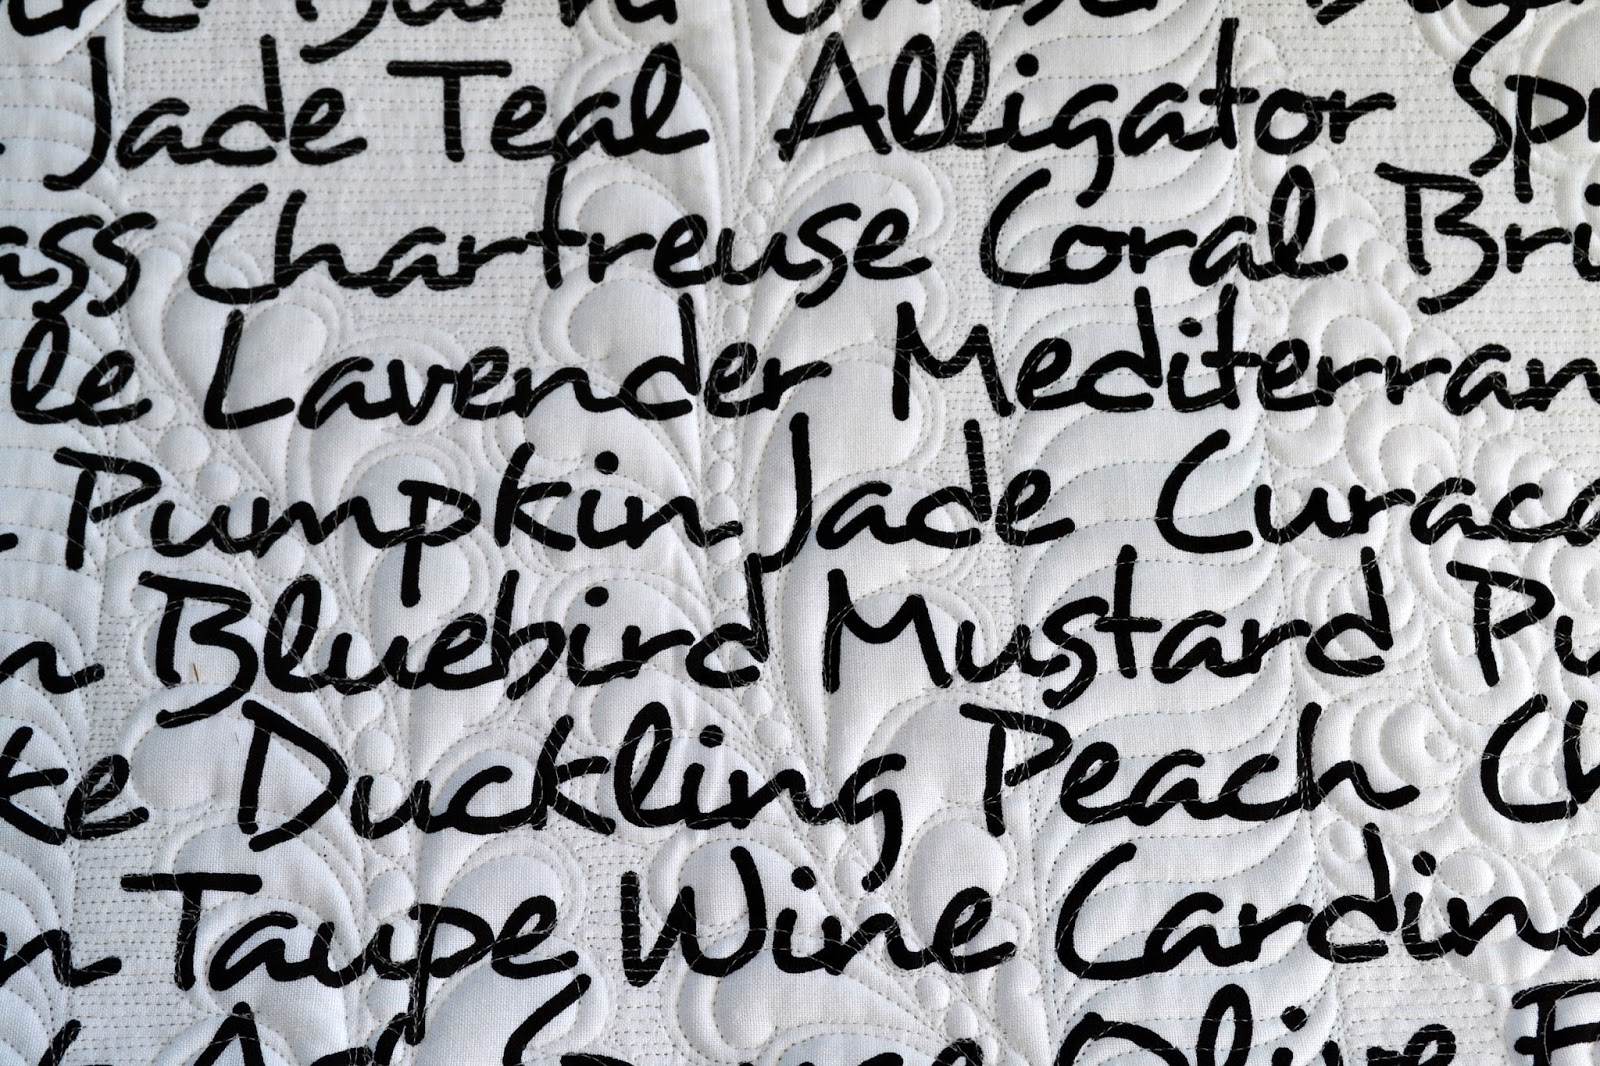 Jade Teal Alligator Spr
ass Chartreuse Coral Bri
le Lavender Mediterran
Pumpkin Jade Curaca
n Bluebird Mustard Pu
ke Duckling Peach Ch
n Taupe Wine Cardina
Olive